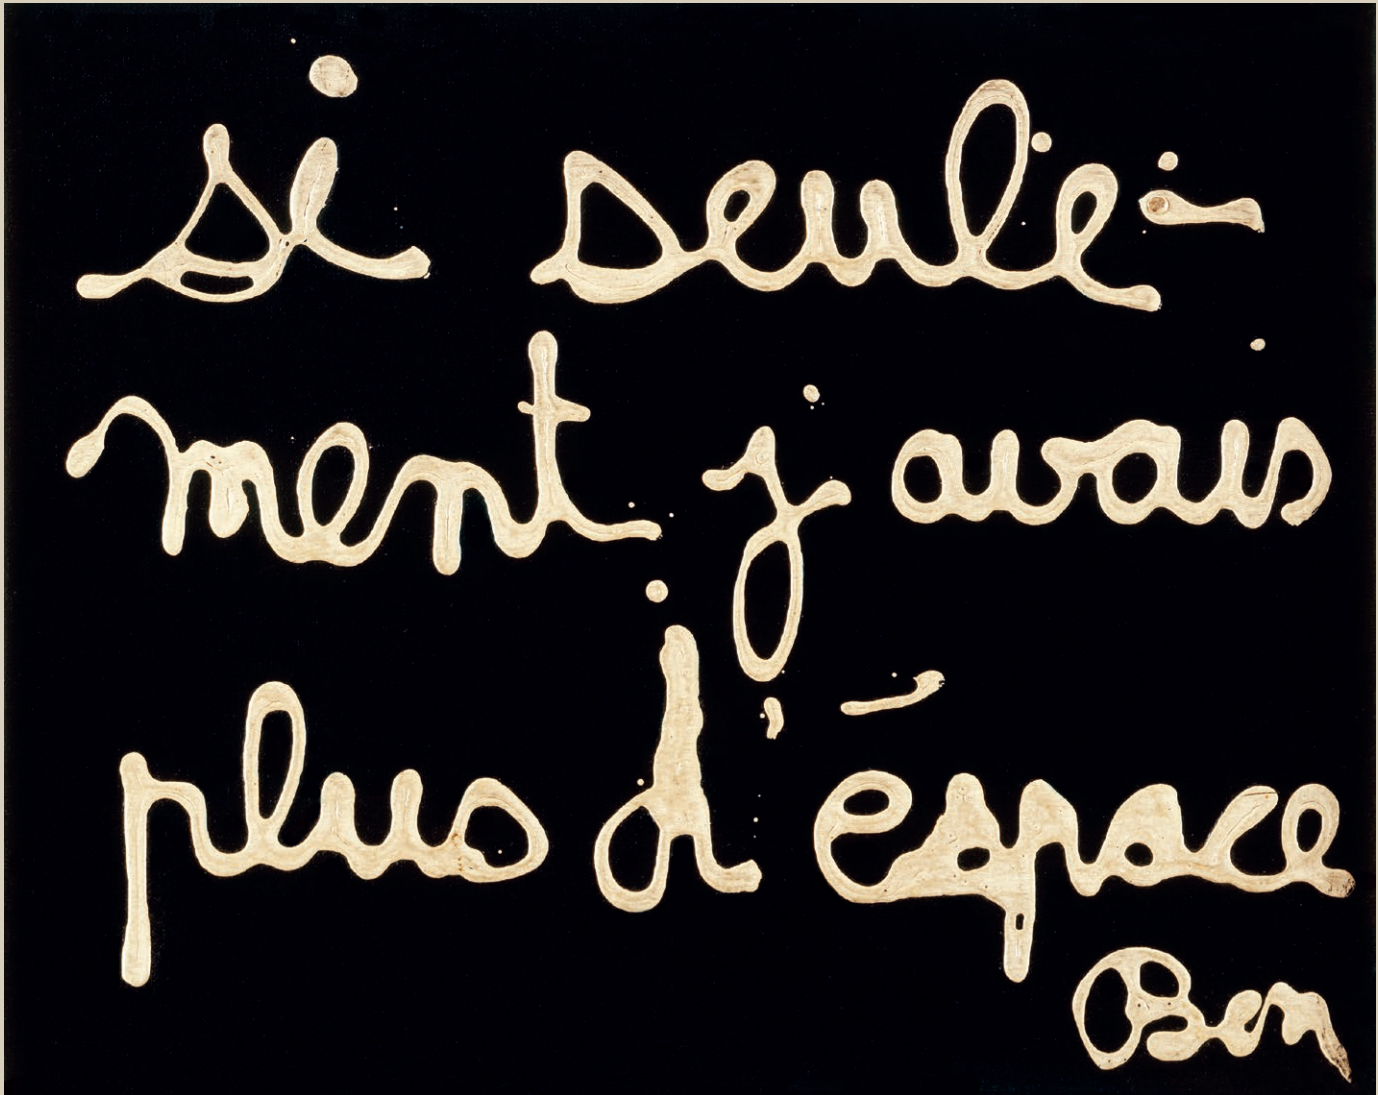 si seule-
ment j'avais
plus d'éspace
Ben